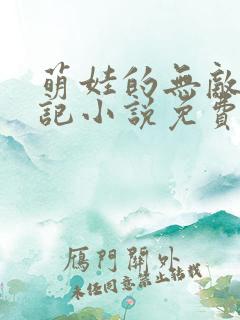 萌娃的無敵
記小說免費
雁門關外
未经同意禁止转载